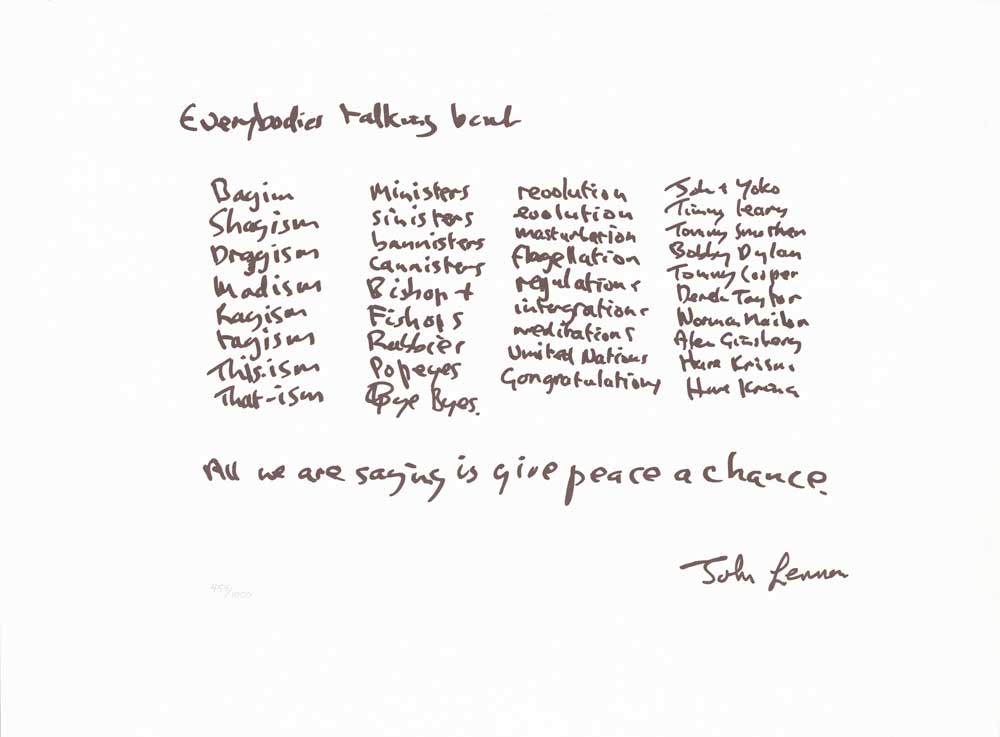 Everybodies talking bout
Bagism
Shagism
Draggism
Madism
Ragism
Tagism
This.ism
That-ism
Ministers
sinisters
bannisters
Cannisters
Bishop +
Fishops
Rabbies
Popeyes
Bye Byes.
revolution
evolution
masturbation
flagellation
regulations
intergrations
meditations
United Nations
Congratulations
John + Yoko
Timmy Leary
Tommy Smothers
Bobby Dylan
Tommy Cooper
Derek Taylor
Norman Mailer
Alen Ginsberg
Hare Krisna
Hare Krisna
All we are saying is give peace a chance.
John Lennon
459/1000